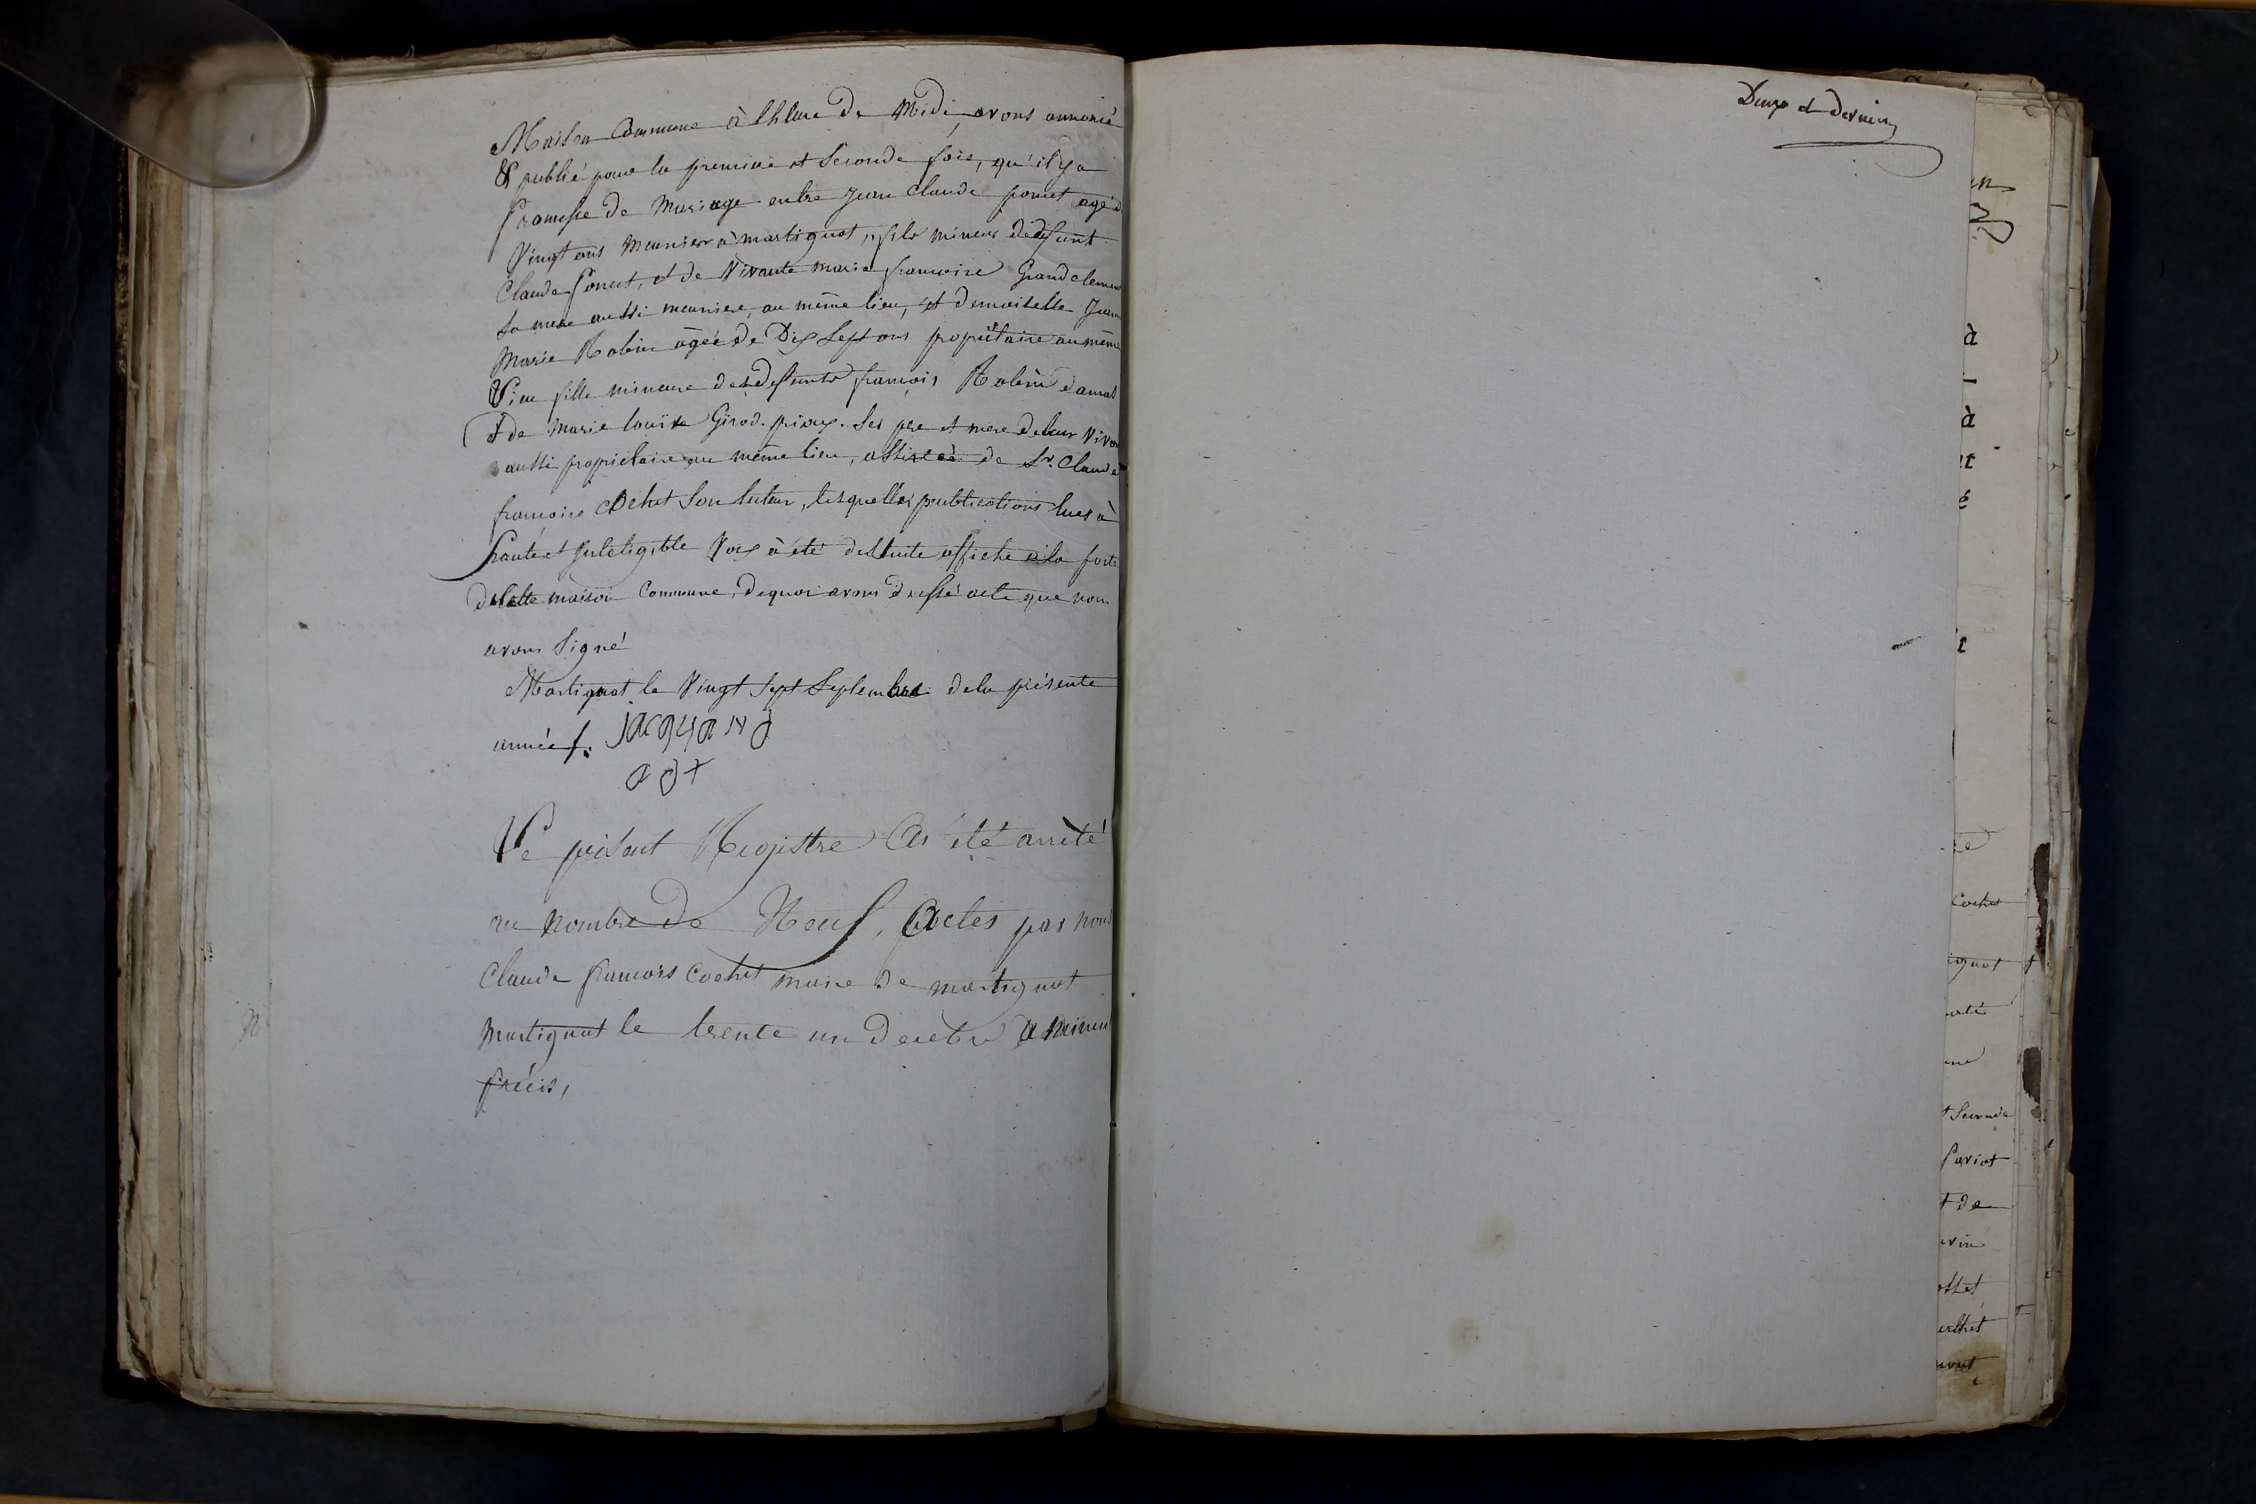 Maison Commune à l'heure de Midi, avons annoncé
& publié pour la premiere et Seconde fois, qu'il y a
Promesse de Mariage entre Jean Claude ponut agé d
Vingt ans Meunier à martignat, fils mineur de defunt
Claude Ponut, et de Vivante marie francoise Grandclement
Sa mere aussi meuniere, au même lieu, et demoiselle Jeanne
Marie Robin agée de Dix Sept ans propriétaire au même
Lieu fille mineure des defunts françois Robin
et de Marie louise Girod. prioux. Ses pre et mere de leur Viva
aussi propriétaire au même lieu, assistée de Sr. Claude
françois Cochet Son tuteur, lesquelles publications lues à
haute et Inteligible Voix à été de Suite affiché à la porte
de cette maison Commune, de quoi avons dressé acte que nous
avons Signé
Martignat le Vingt Sept Septembre de la présente
année /.
jacquand
adt
Le présent Registre a été arrêté
au nombre de Neuf, actes par nous
Claude francois Cochet maire de martignat
Martignat le trente un decebre a Minuit
précis,
Deux et dernier
Cochet
ignat
t Seconde
Pariot
t de